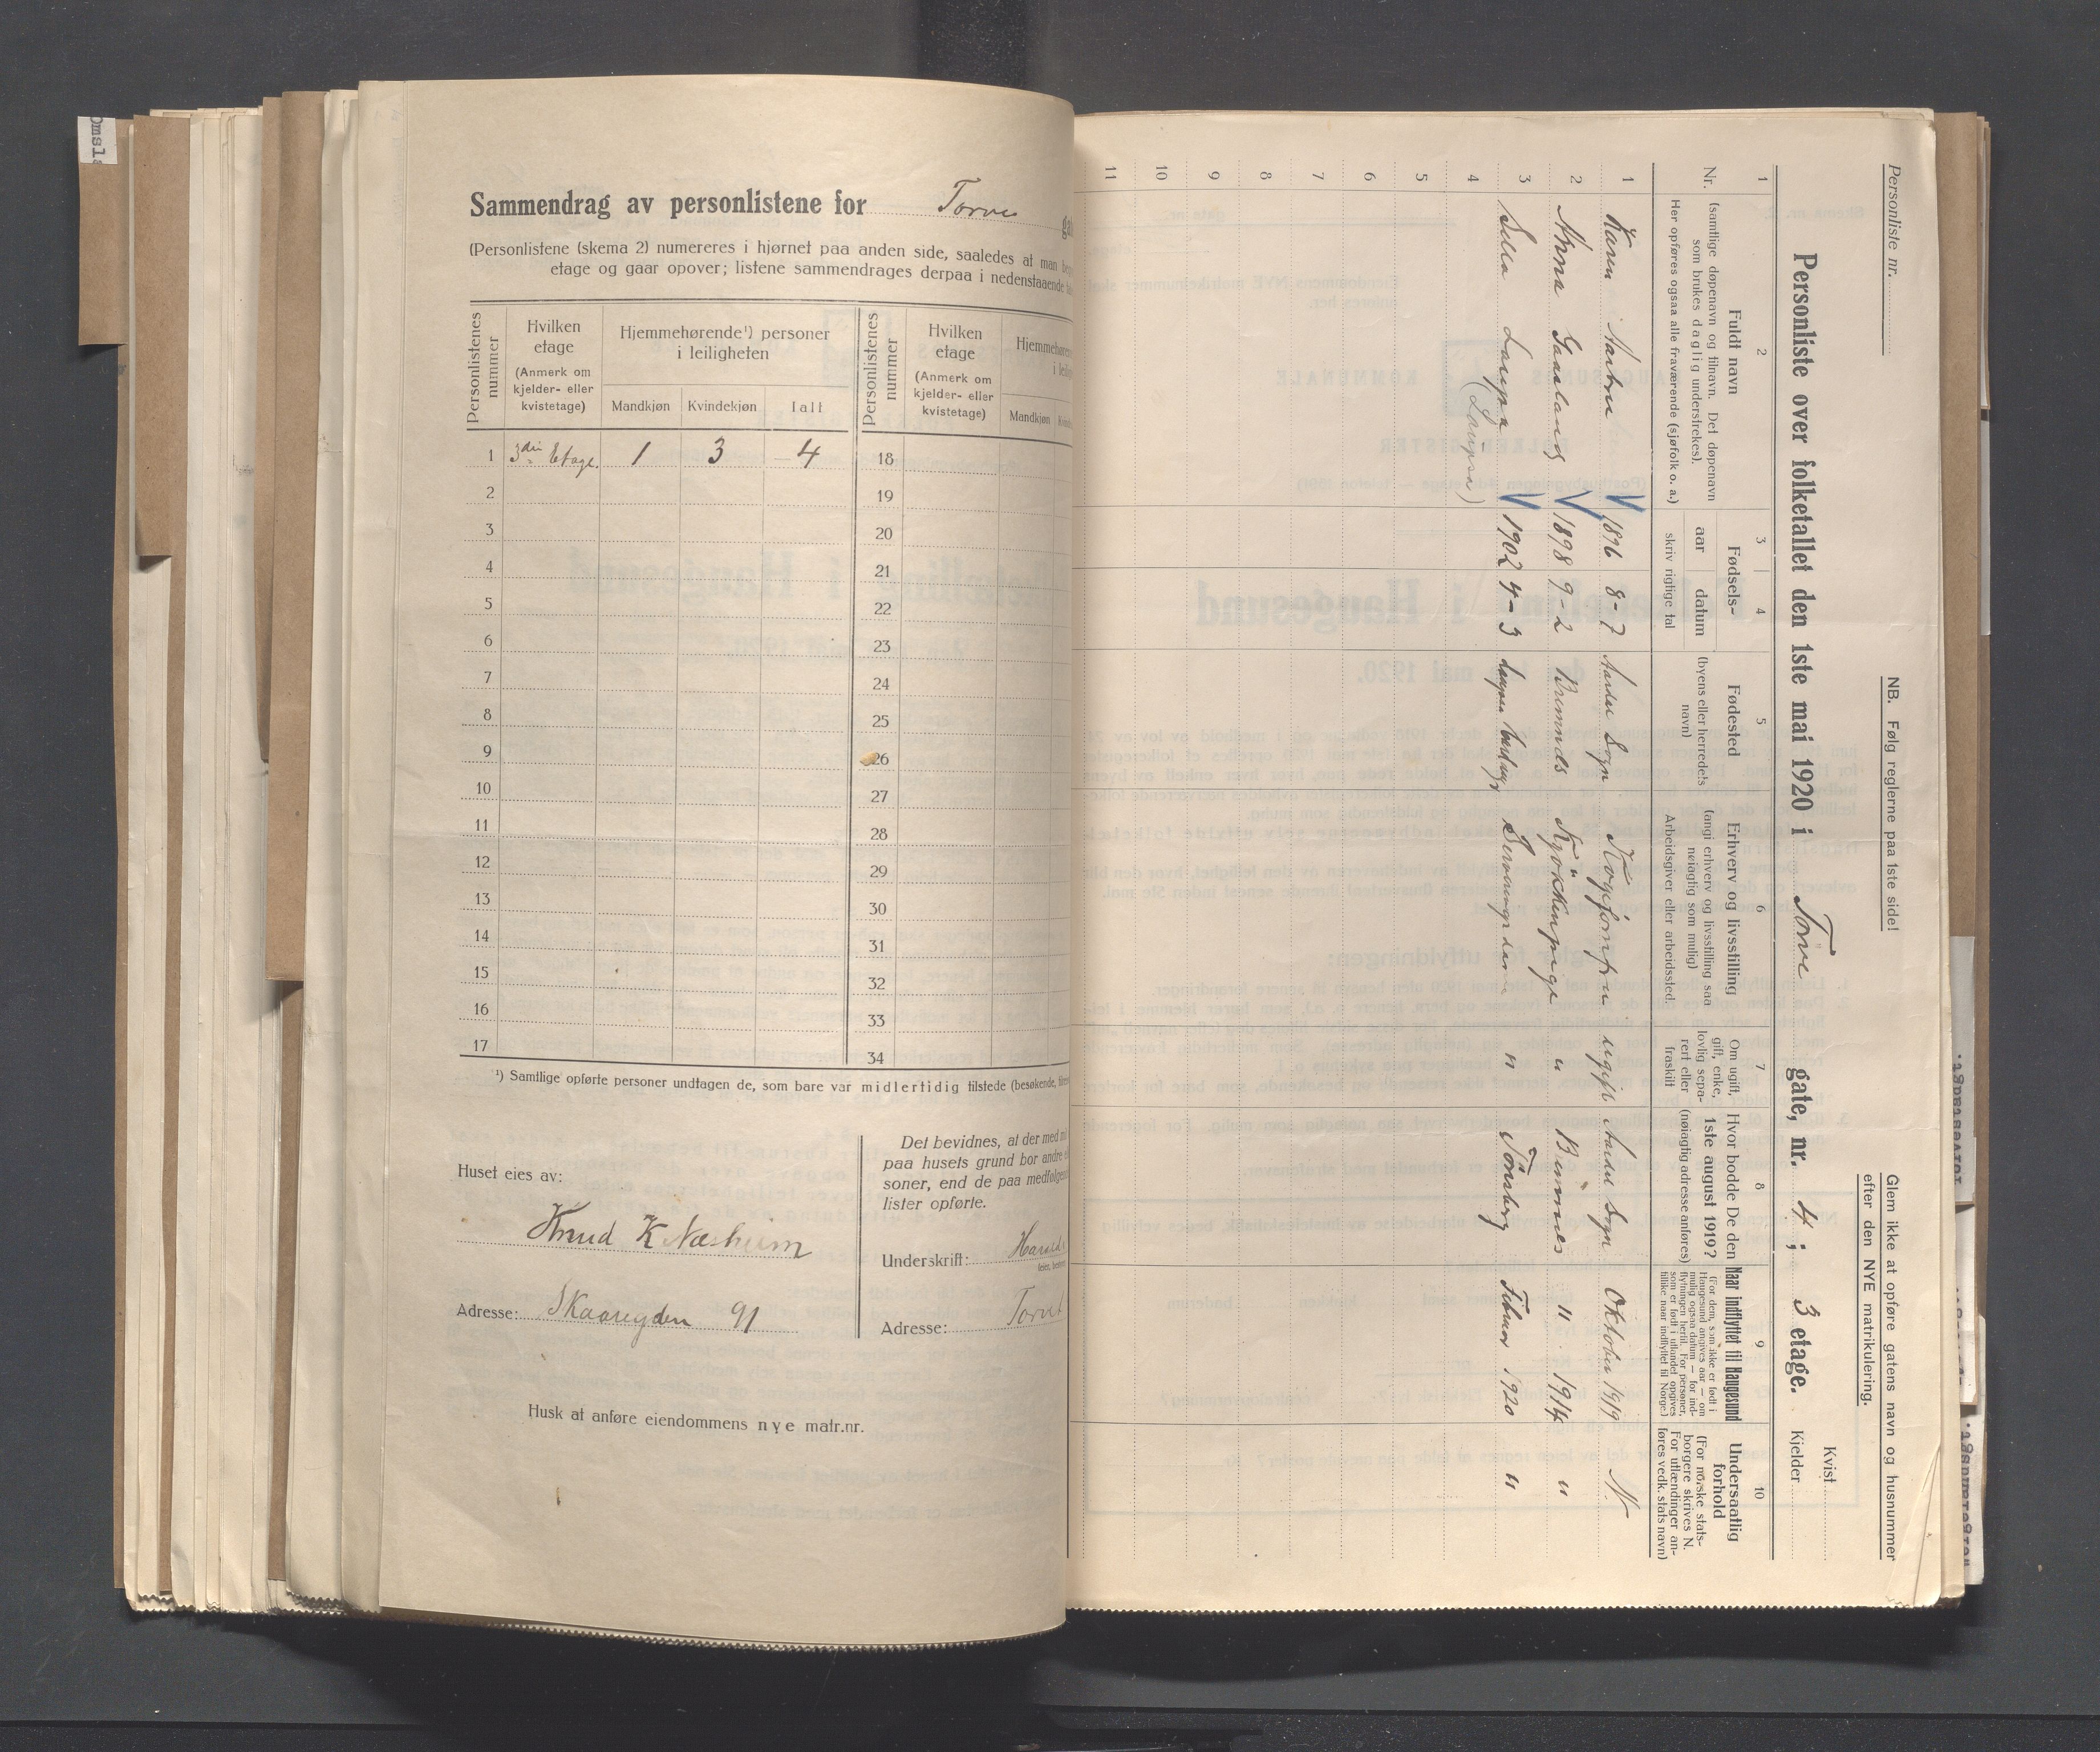 Omsl
Sammendrag av personlistene for Torve
(Personlistene (skema 2) numereres i hjørnet paa anden side, saaledes at man
etage og gaar opover; listene sammendrages derpaa i nedenstaaende
Personlistenes nummer
Hvilken etage
(Anmerk om kjelder- eller kvistetage)
Hjemmehørende¹) personer i leiligheten
Mandkjøn Kvindekjøn Ialt
Personlistenes nummer
Hvilken etage
(Anmerk om kjelder- eller kvistetage)
Mandkjøn
1 3die Etage. 1 3 4 18
2 19
3 20
4 21
5 22
6 23
7 24
8 25
9 26
10 27
11 28
12 29
13 30
14 31
15 32
16 33
17 34
¹) Samtlige opførte personer undtagen de, som bare var midlertidig tilstede (besøkende,
Huset eies av:
Knud K Næsheim
Adresse: Skaaregaden 91
Det bevidnes, at der med
paa husets grund bor andre
soner, end de paa medfølgen
lister opførte.
Underskrift:
Adresse: Torvet
Husk at anføre eiendommens nye matr.nr.
Personliste nr.
NB. Følg reglerne paa 1ste side!
Glem ikke at opføre gatens navn og husnummer
efter den NYE matrikulering.
Personliste over folketallet den 1ste mai 1920 i Torve gate, nr. 4; 3 etage.
Kvist
Kjelder
1 2 3 4 5 6 7 8 9 10
Nr.
Fuldt navn
(samtlige døpenavn og tilnavn. Det døpenavn
som brukes daglig understrekes).
Her opføres ogsaa alle fraværende (sjøfolk o. a.)
Fødsels-
aar datum
skriv rigtige tal
Fødested
(byens eller herredets navn)
Erhverv og livsstilling
(angi erhverv og livsstilling saa
nøiagtig som mulig)
Arbeidsgiver eller arbeidssted.
Om ugift, gift, enke, lovlig separert eller fraskilt
Hvor bodde De den
1ste august 1919?
(nøiagtig adresse anføres)
Naar indflyttet til Haugesund
(For dem, som ikke er født i
Haugesund angives aar — om
mulig ogsaa datum — for indflytningen hertil. For personer,
som er født i utlandet opgives
tillike naar indflyttet til Norge.)
Undersaatlig forhold
(For norske statsborgere skrives N.
For utlændinger anføres vedk. stats navn)
1 Karen 1896 8-7 Aardal Sogn Kogejomfru ugift Aardal Sogn Oktober 1919 N.
2 Anna Gaasland 1898 9-2 Kjøkkenpige " " 1914 "
3 1902 4-3 " Tönsberg Februar 1920 "
4
5
6
7
8
9
10
11